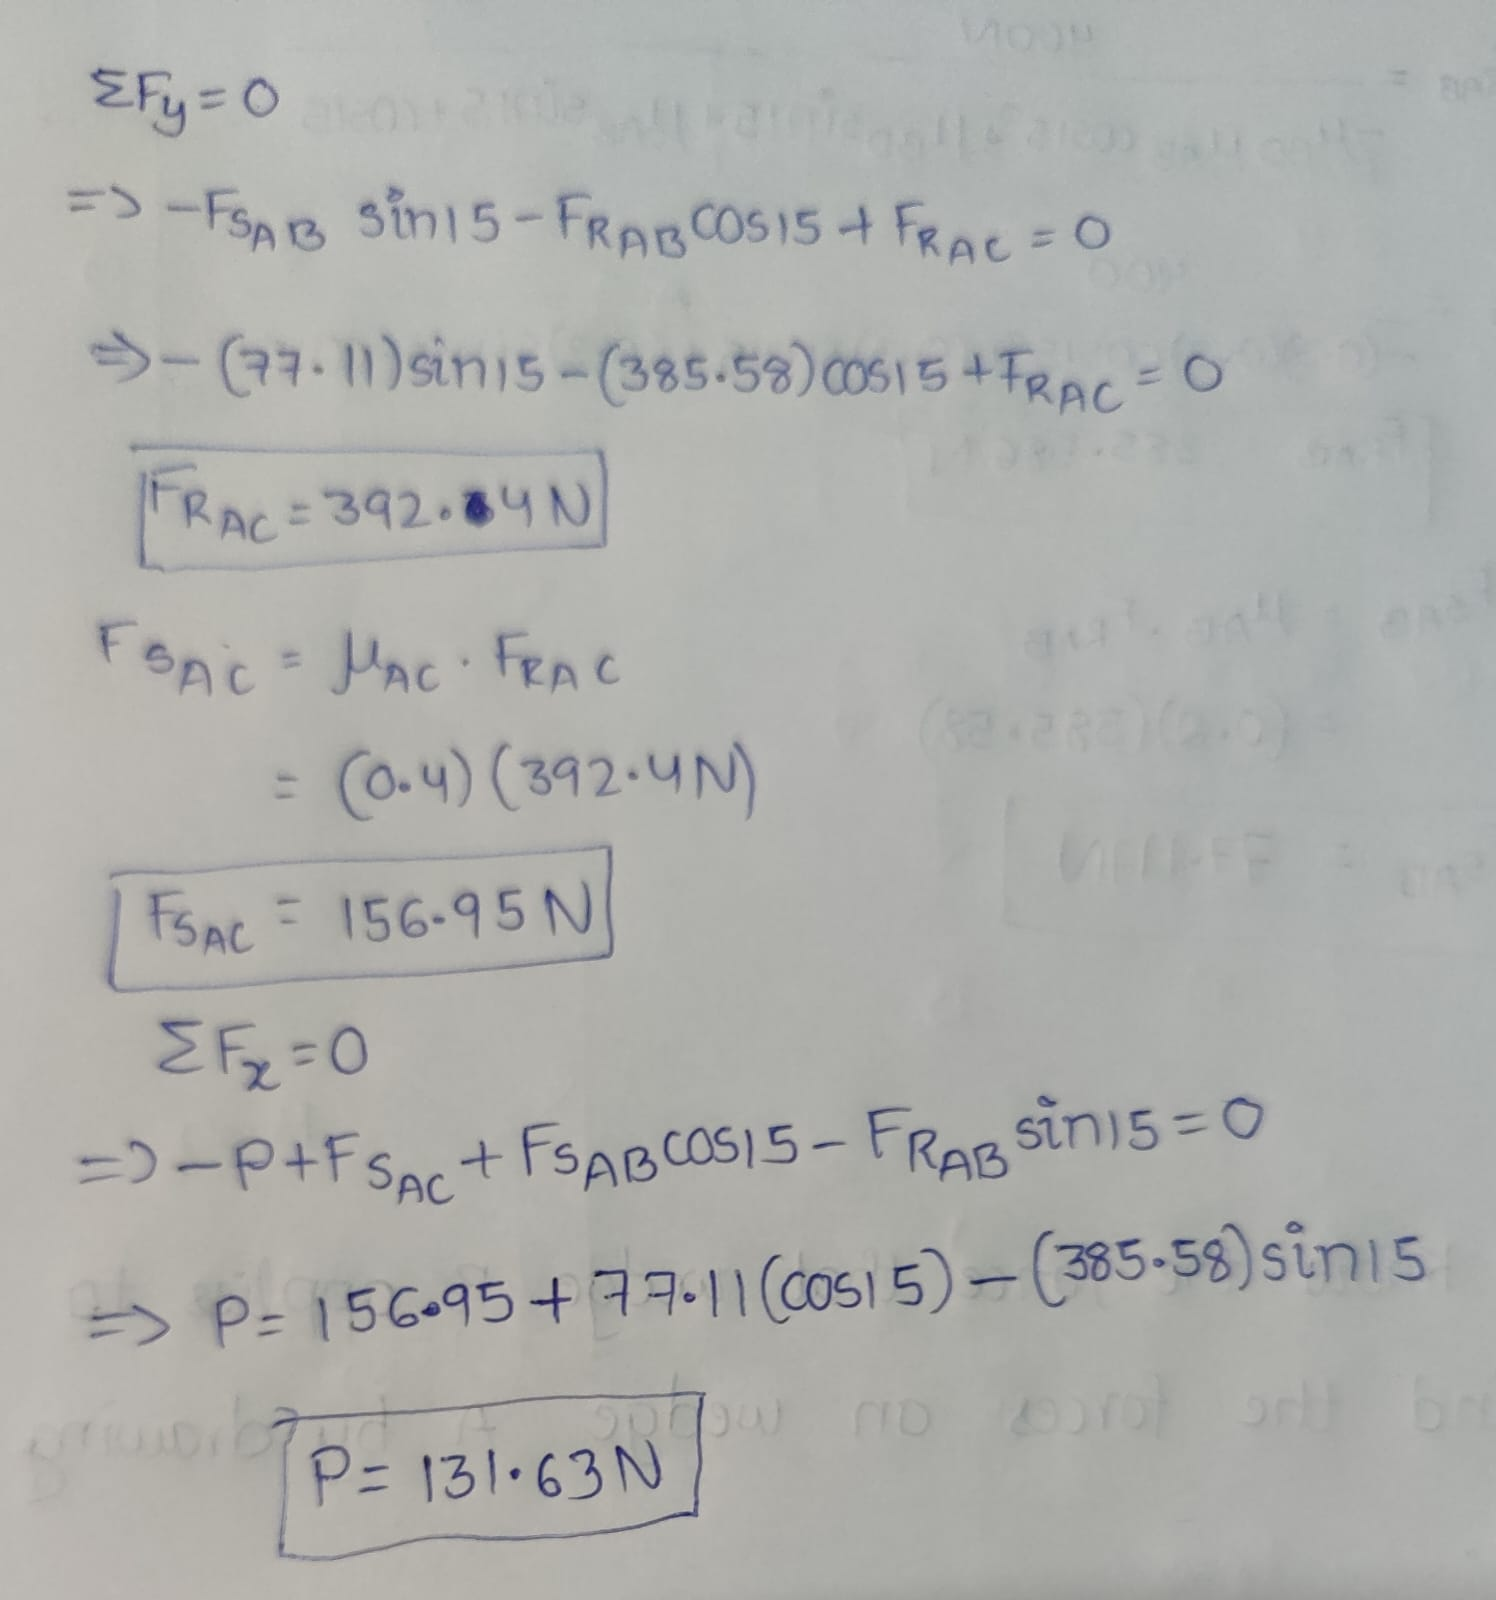 ΣFy=0
=> -FSAB sin15 - FRAB COS15 + FRAC = 0
=> - (77.11)sin15 - (385.58)cos15 + FRAC = 0
FRAC = 392.4N
FSAC = μAC . FRAC
= (0.4) (392.4N)
FSAC = 156.95 N
ΣFx=0
=> -P + FSAC + FSAB COS15 - FRAB sin15 = 0
=> P = 156.95 + 77.11(cos15) - (385.58)sin15
P = 131.63N